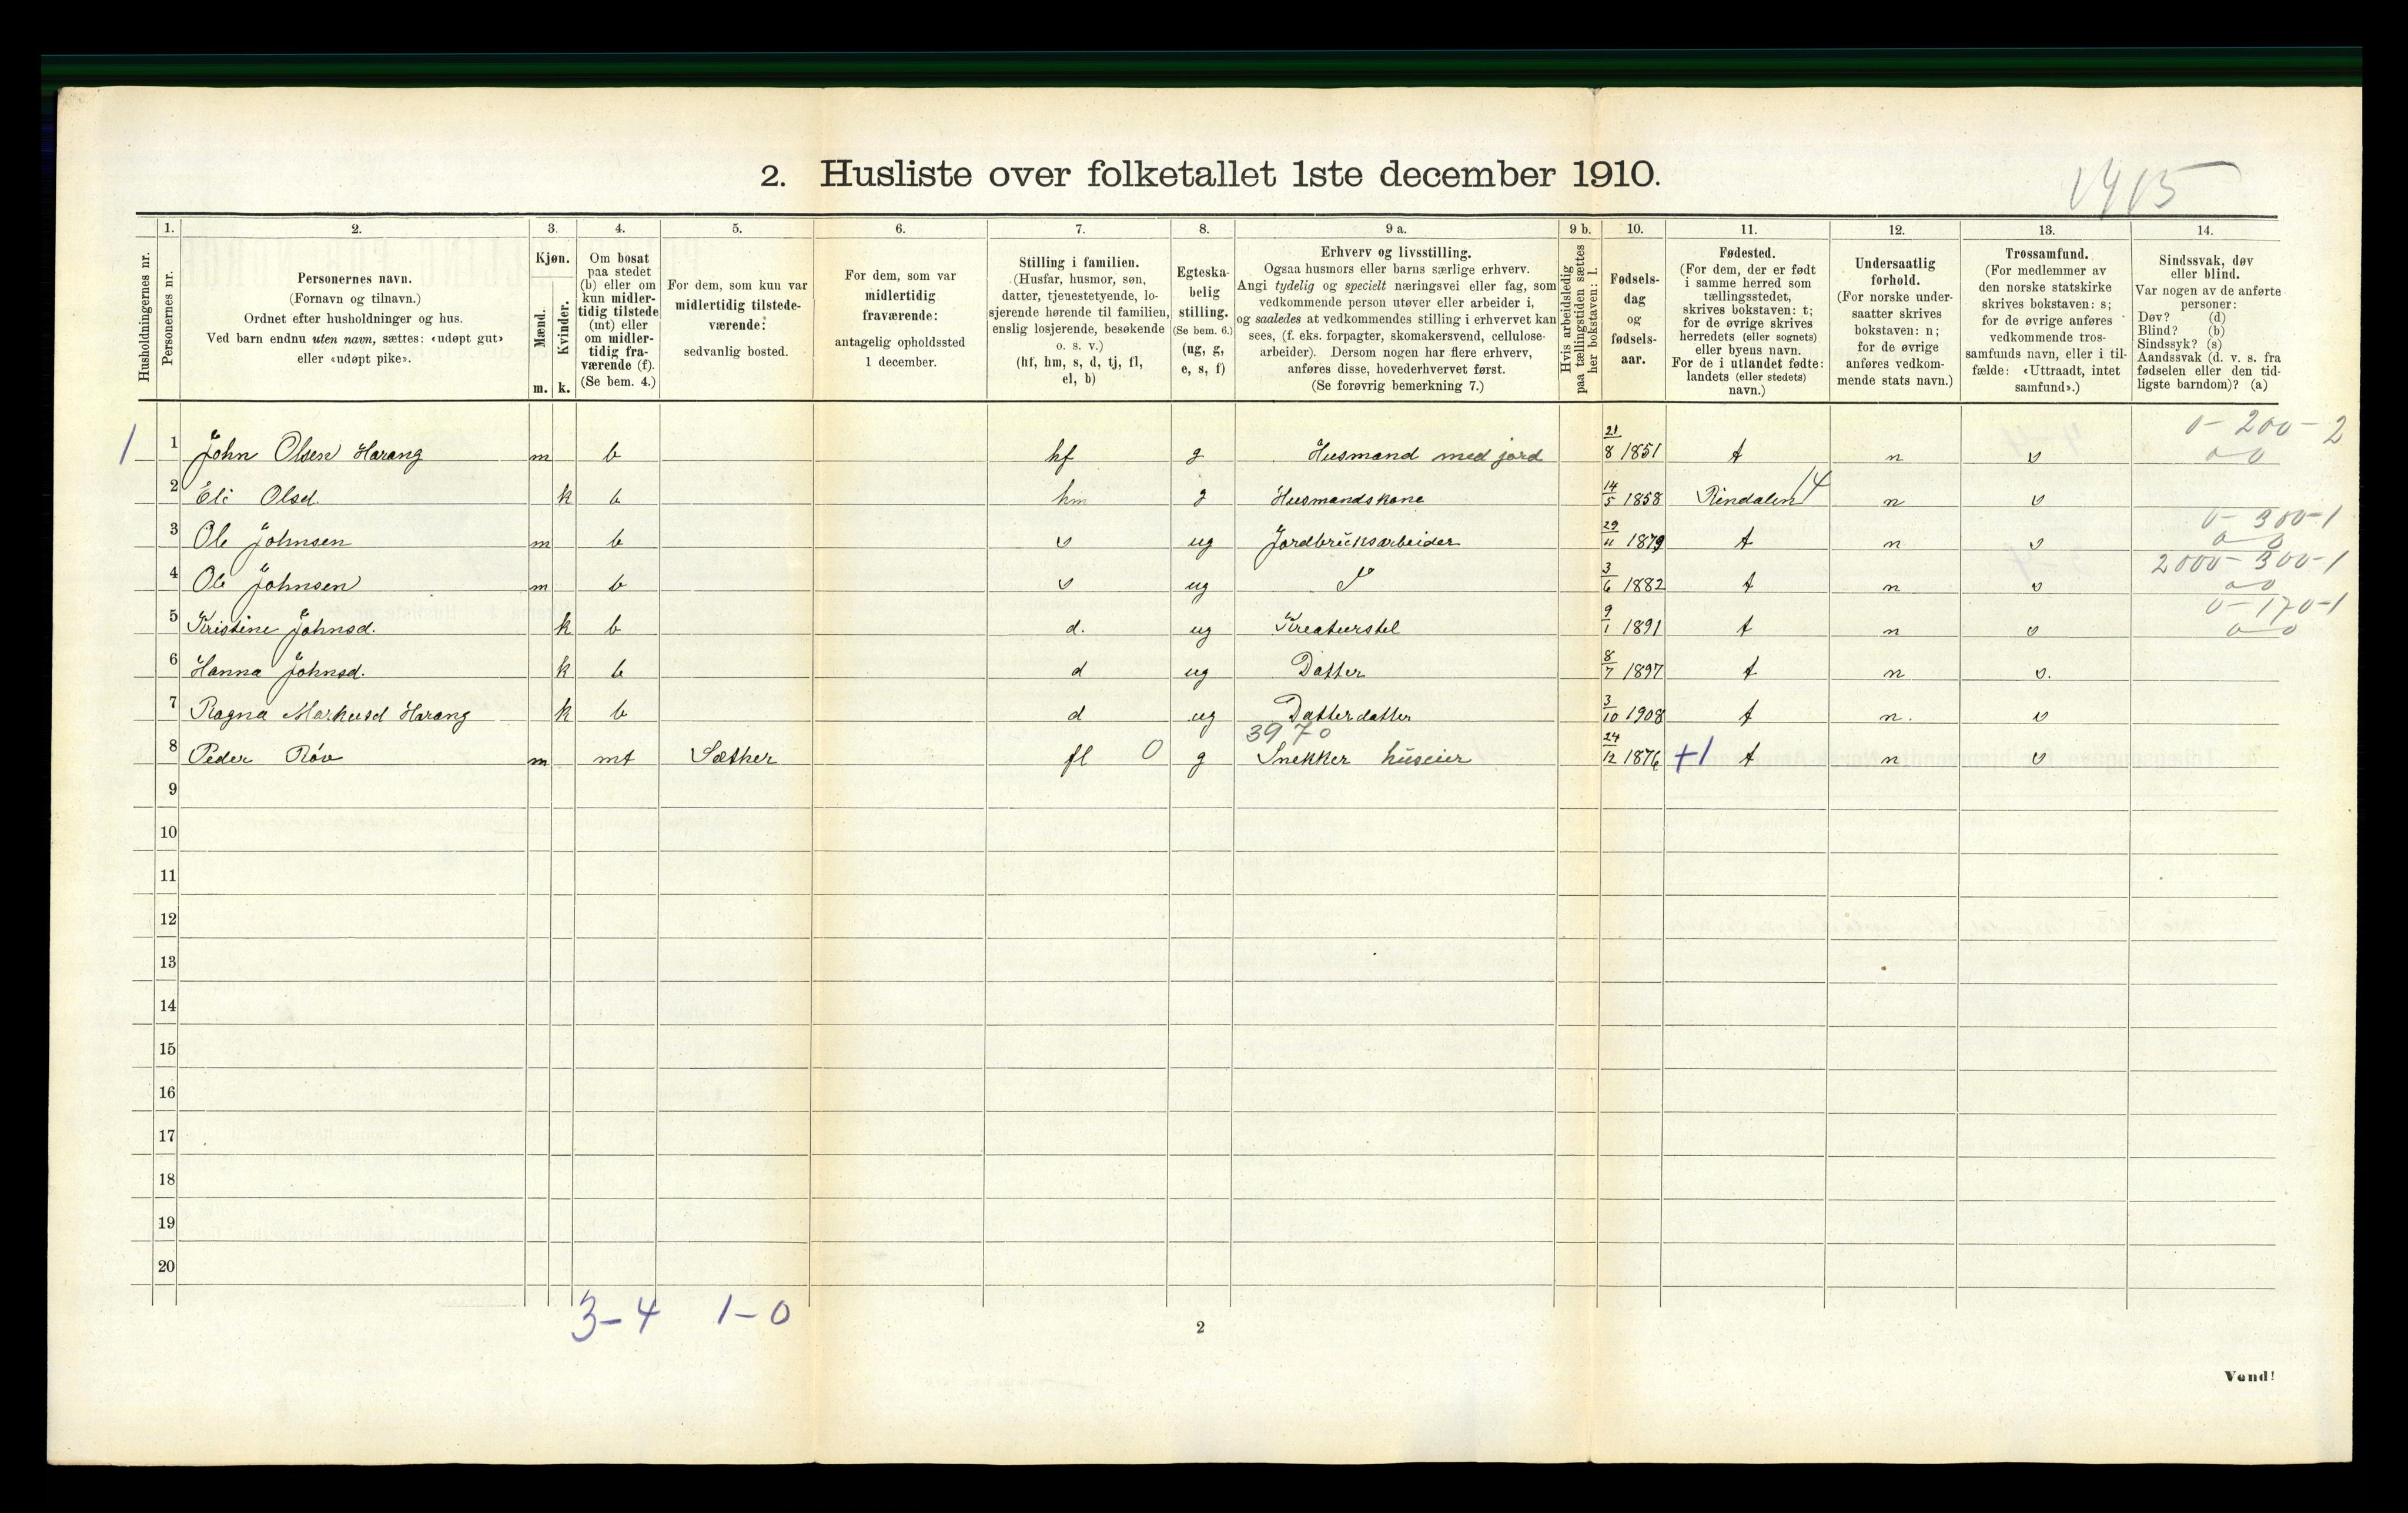 2. Husliste over folketallet 1ste december 1910.
1915
Husholdningernes nr.
1. Personernes nr.
2. Personernes navn.
(Fornavn og tilnavn.)
Ordnet efter husholdninger og hus.
Ved barn endnu uten navn, sættes: «udøpt gut»
eller «udøpt pike».
3. Kjøn.
Mænd. m.
Kvinder. k.
4. Om bosat
paa stedet
(b) eller om
kun midler-
tidig tilstede
(mt) eller
om midler-
tidig fra-
værende (f).
(Se bem. 4.)
5. For dem, som kun var
midlertidig tilstede-
værende:
sedvanlig bosted.
6. For dem, som var
midlertidig
fraværende:
antagelig opholdssted
1 december.
7. Stilling i familien.
(Husfar, husmor, søn,
datter, tjenestetyende, lo-
sjerende hørende til familien,
enslig losjerende, besøkende
o. s. v.)
(hf, hm, s, d, tj, fl,
el, b)
8. Egteska-
belig
stilling.
(Se bem. 6.)
(ug, g,
e, s, f)
9 a. Erhverv og livsstilling.
Ogsaa husmors eller barns særlige erhverv.
Angi tydelig og specielt næringsvei eller fag, som
vedkommende person utøver eller arbeider i,
og saaledes at vedkommendes stilling i erhvervet kan
sees, (f. eks. forpagter, skomakersvend, cellulose-
arbeider). Dersom nogen har flere erhverv,
anføres disse, hovederhvervet først.
(Se forøvrig bemerkning 7.)
9 b. Hvis arbeidsledig
paa tællingstiden sættes
her bokstaven: l.
10. Fødsels-
dag
og
fødsels-
aar.
11. Fødested.
(For dem, der er født
i samme herred som
tællingsstedet,
skrives bokstaven: t;
for de øvrige skrives
herredets (eller sognets)
eller byens navn.
For de i utlandet fødte:
landets (eller stedets)
navn.)
12. Undersaatlig
forhold.
(For norske under-
saatter skrives
bokstaven: n;
for de øvrige
anføres vedkom-
mende stats navn.)
13. Trossamfund.
(For medlemmer av
den norske statskirke
skrives bokstaven: s;
for de øvrige anføres
vedkommende tros-
samfunds navn, eller i til-
fælde: «Uttraadt, intet
samfund».)
14. Sindssvak, døv
eller blind.
Var nogen av de anførte
personer:
Døv? (d)
Blind? (b)
Sindssyk? (s)
Aandssvak (d. v. s. fra
fødselen eller den tid-
ligste barndom)? (a)
0-200-2
1 1 John Olsen Harang m b hf g Husmand med jord 21/8 1851 t n s 0-0
2 Eli Olsd. k b hm g Husmandskone 14/5 1858 Rindalen 14 n s
0-300-1
3 Ole Johnsen m b s ug Jordbruksarbeider 29/11 1879 t n s 0-0
2000-300-1
4 Ole Johnsen m b s ug 3/6 1882 t n s 0-0
0-170-1
5 Kristine Johnsd. k b d. ug Kreaturstel 9/1 1891 t n s 0-0
6 Hanna Johnsd. k b d ug Datter 8/7 1897 t n s.
7 Ragna Markusd Harang k b d ug Datterdatter 3/10 1908 t n. s
3970
8 Peder Röv m mt Sæther fl 0 g Snekker huseier 24/12 1876 +1 t n s
9
10
11
12
13
14
15
16
17
18
19
20
3-4 1-0
2
Vend!